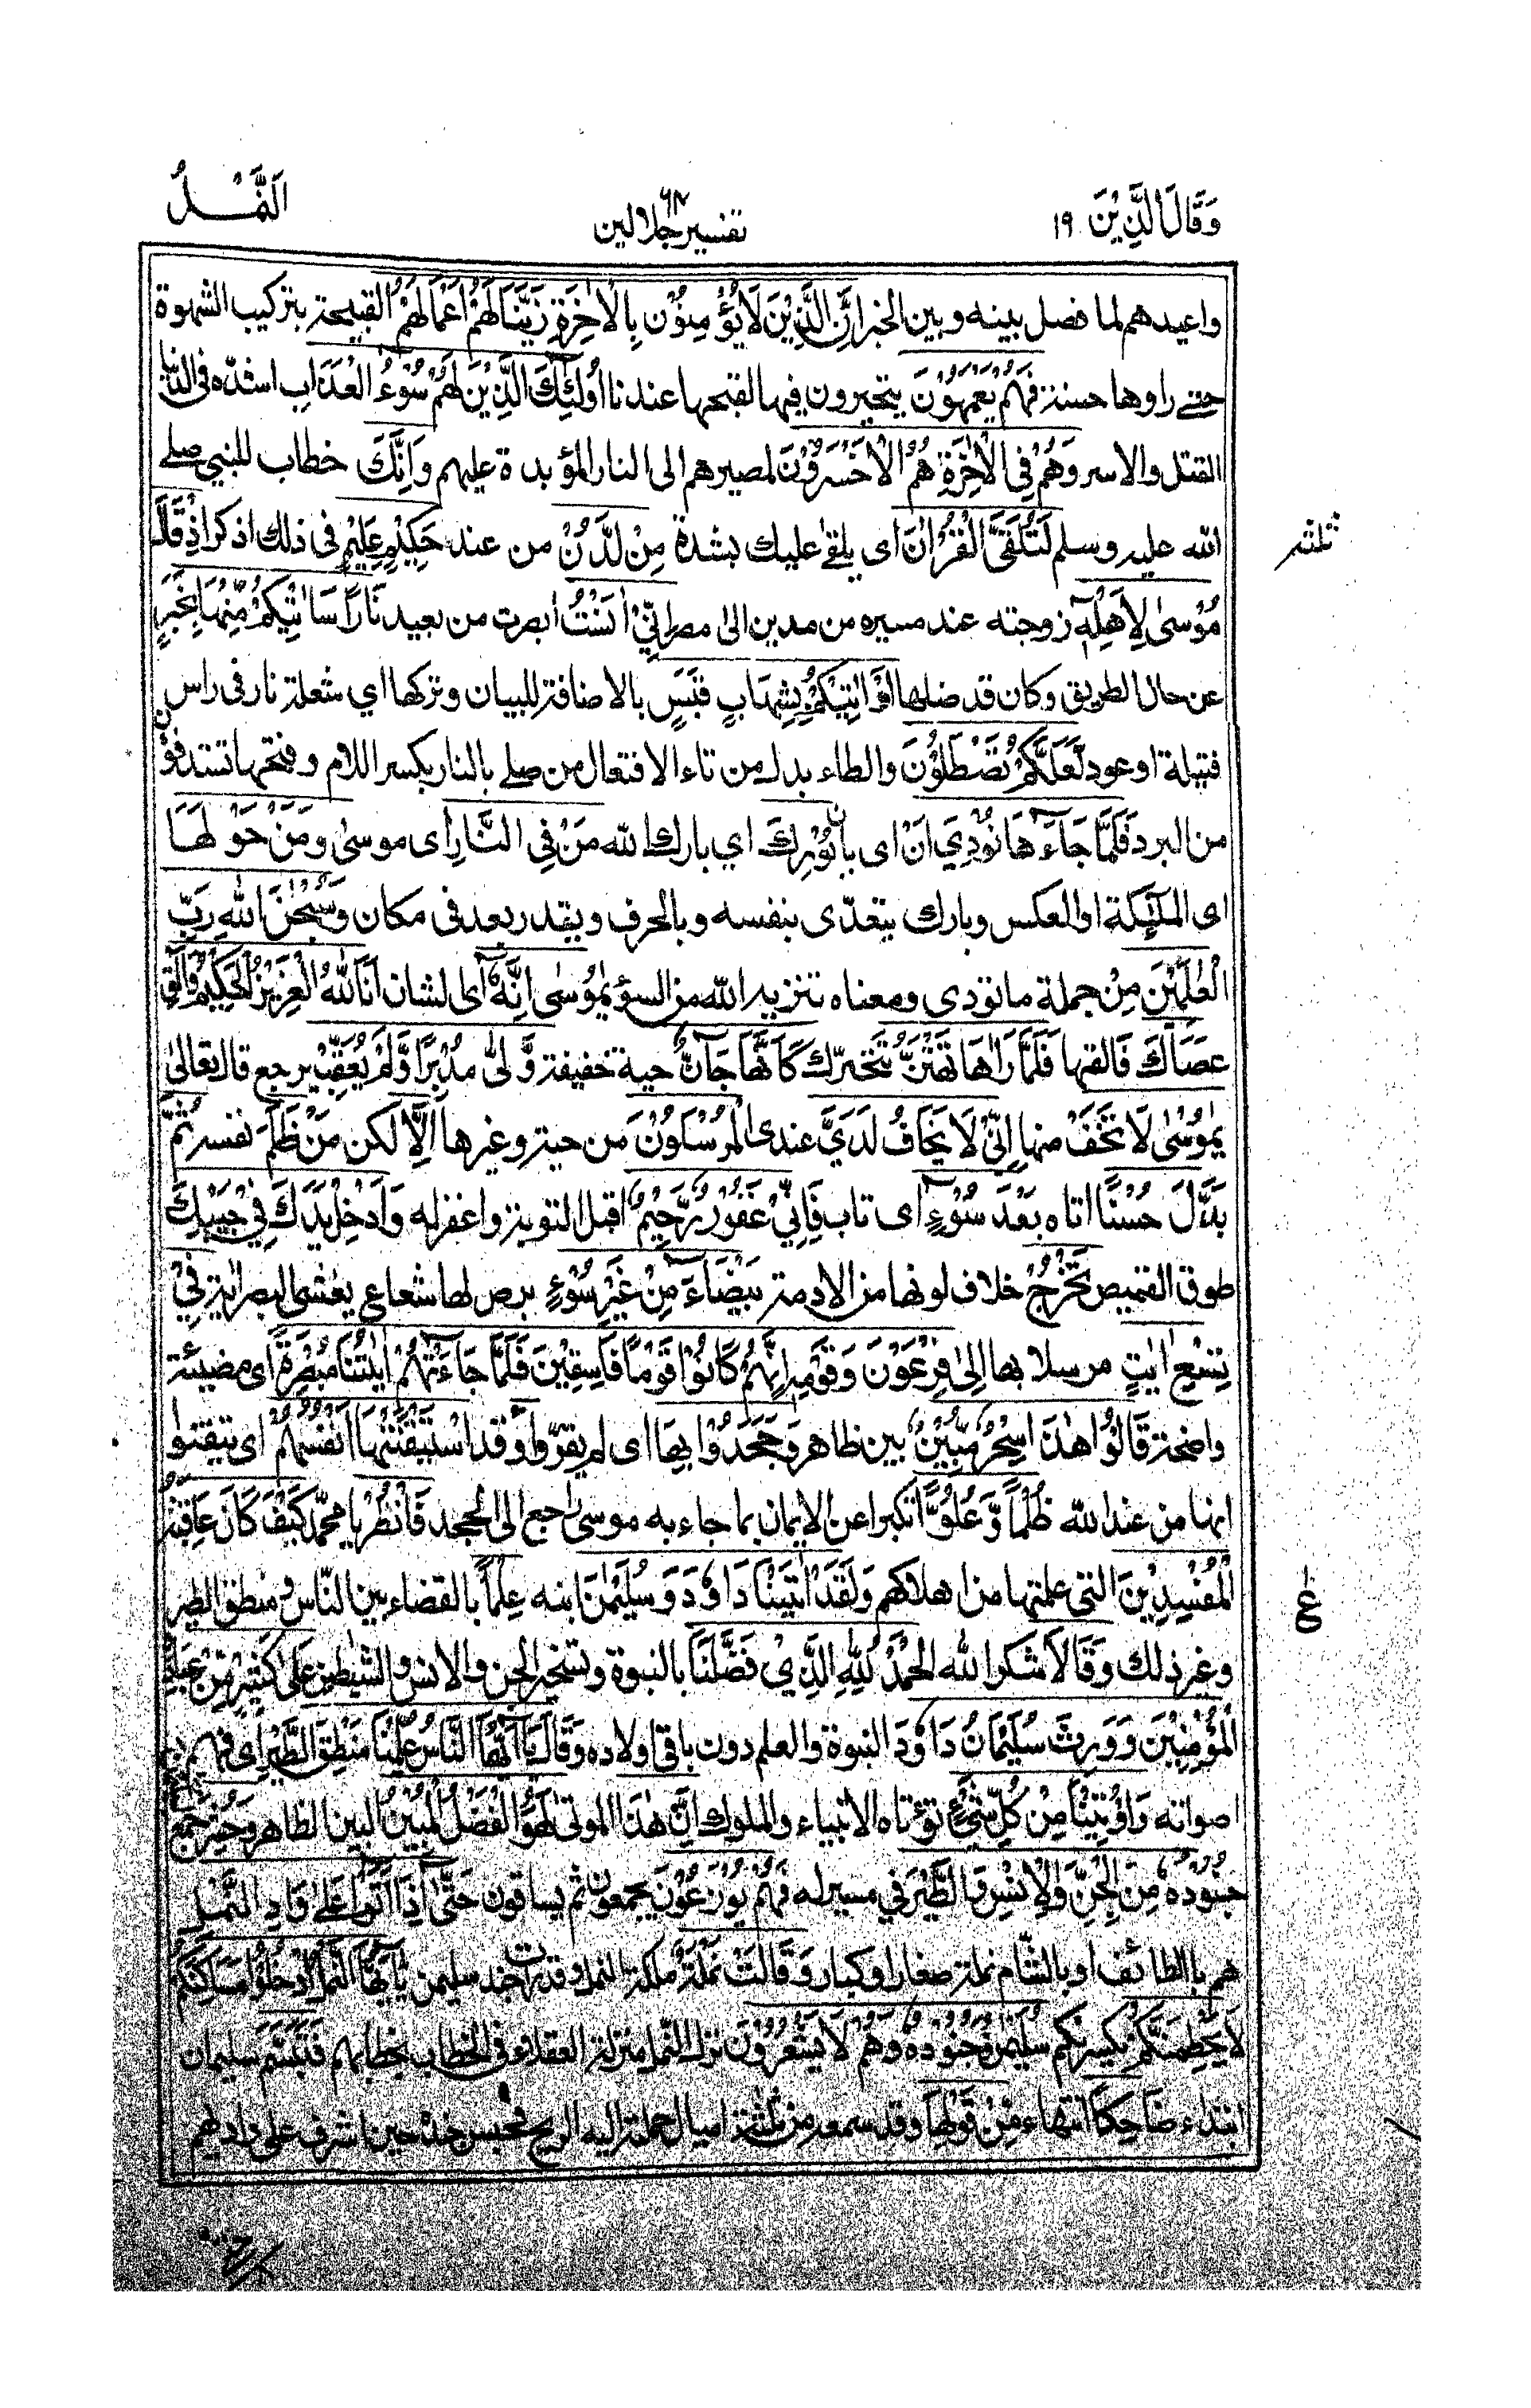 وَقَالَ الَّذِيْنَ ١٩
٦٨
تفسير جلالين
اَلنَّمْلُ
واعيدهم لما فصل بينه وبين الخبر اِنَّ الَّذِيْنَ لَا يُؤْمِنُوْنَ بِالْاٰخِرَةِ زَيَّنَّا لَهُمْ اَعْمَالَهُمْ القبيحة بتركيب الشهوة
حتى راوها حسنة فَهُمْ يَعْمَهُوْنَ يتحيرون فيها لقبحها عندنا اُولٰٓئِكَ الَّذِيْنَ لَهُمْ سُوْٓءُ الْعَذَابِ اشده فى الدنيا
القتل والاسر وَهُمْ فِى الْاٰخِرَةِ هُمُ الْاَخْسَرُوْنَ لمصيرهم الى النار المؤبدة عليهم وَاِنَّكَ خطاب للنبي صلى
الله عليه وسلم لَتُلَقَّى الْقُرْاٰنَ اى يلقى عليك بشدة مِنْ لَّدُنْ من عند حَكِيْمٍ عَلِيْمٍ فى ذلك اذكر اِذْ قَالَ
ثلثة
مُوْسٰى لِاَهْلِهٖٓ زوجته عند مسيره من مدين الى مصر اِنِّىْٓ اٰنَسْتُ ابصرت من بعيد نَارًا سَاٰتِيْكُمْ مِّنْهَا بِخَبَرٍ
عن حال الطريق وكان قد ضلها اَوْ اٰتِيْكُمْ بِشِهَابٍ قَبَسٍ بالاضافة للبيان وتركها اي شعلة نار فى راس
فتيلة او عود لَّعَلَّكُمْ تَصْطَلُوْنَ والطاء بدل من تاء الافتعال من صلى بالنار بكسر اللام وفتحها تستدفؤن
من البرد فَلَمَّا جَآءَهَا نُوْدِيَ اَنْ اى بان بُوْرِكَ اي بارك الله مَنْ فِى النَّارِ اى موسى وَمَنْ حَوْلَهَا
اى الملٰٓئكة او العكس وبارك يتعدّى بنفسه وبالحرف ويقدر بعد فى مكان وَسُبْحٰنَ اللهِ رَبِّ
الْعٰلَمِيْنَ مِنْ جملة ما نودى ومعناه تنزيه الله من السوء يٰمُوْسٰى اِنَّهٗٓ اى الشان اَنَا اللهُ الْعَزِيْزُ الْحَكِيْمُ وَاَلْقِ
عَصَاكَ فالقها فَلَمَّا رَاٰهَا تَهْتَزُّ تتحرّك كَاَنَّهَا جَآنٌّ حية خفيفة وَّلّٰى مُدْبِرًا وَّلَمْ يُعَقِّبْ يرجع قال تعالى
يٰمُوْسٰى لَا تَخَفْ منها اِنِّىْ لَا يَخَافُ لَدَيَّ عندى الْمُرْسَلُوْنَ من حية وغيرها اِلَّا لكن مَنْ ظَلَمَ نفسه ثُمَّ
بَدَّلَ حُسْنًا اتاه بَعْدَ سُوْٓءٍ اى تاب فَاِنِّىْ غَفُوْرٌ رَّحِيْمٌ اقبل التوبة واغفر له وَاَدْخِلْ يَدَكَ فِيْ جَيْبِكَ
طوق القميص تَخْرُجْ خلاف لونها من الادمة بَيْضَآءَ مِنْ غَيْرِ سُوْٓءٍ برص لها شعاع يغشى البصر اية فِيْ
تِسْعِ اٰيٰتٍ مرسلا بها اِلٰى فِرْعَوْنَ وَقَوْمِهٖ اِنَّهُمْ كَانُوْا قَوْمًا فٰسِقِيْنَ فَلَمَّا جَآءَتْهُمْ اٰيٰتُنَا مُبْصِرَةً اى مضيئة
واضحة قَالُوْا هٰذَا سِحْرٌ مُّبِيْنٌ بين ظاهر وَجَحَدُوْا بِهَا اى لم يقرّوا وَقد اسْتَيْقَنَتْهَآ اَنْفُسُهُمْ اى تيقنوا
انها من عند الله ظُلْمًا وَّعُلُوًّا تكبرا عن الايمان بما جاء به موسى راجع الى الجحد فَانْظُرْ يا محمد كَيْفَ كَانَ عَاقِبَةُ
الْمُفْسِدِيْنَ التى علمتها من اهلاكهم وَلَقَدْ اٰتَيْنَا دَاوٗدَ وَسُلَيْمٰنَ ابنه عِلْمًا بالقضاء بين النّاس ومنطق الطير
ع
وغير ذلك وَقَالَا شكرا لله الْحَمْدُ لِلّٰهِ الَّذِيْ فَضَّلَنَا بالنبوة وتسخير الجن والانس والشيٰطين عَلٰى كَثِيْرٍ مِّنْ عِبَادِهِ
الْمُؤْمِنِيْنَ وَوَرِثَ سُلَيْمَانُ دَاوٗدَ النبوة والعلم دون باقى اولاده وَقَالَ يٰٓاَيُّهَا النَّاسُ عُلِّمْنَا مَنْطِقَ الطَّيْرِ اى فهم
اصواته وَاُوْتِيْنَا مِنْ كُلِّ شَيْءٍ تؤتاه الانبياء والملوك اِنَّ هٰذَا الموتى لَهُوَ الْفَضْلُ الْمُبِيْنُ البين الظاهر وَحُشِرَ جمع
جُنُوْدُهٗ مِنَ الْجِنِّ وَالْاِنْسِ وَالطَّيْرِ في مسير له فَهُمْ يُوْزَعُوْنَ يجمعون ثم يساقون حَتّٰٓى اِذَآ اَتَوْا عَلٰى وَادِ النَّمْلِ
هم بالطائف او بالشّام نملة صغار او كبار وَقَالَتْ نَمْلَةٌ ملكة النمل وقد رات جند سليمن يٰٓاَيُّهَا النَّمْلُ ادْخُلُوْا مَسَاكِنَكُمْ
لَا يَحْطِمَنَّكُمْ يكسرنكم سُلَيْمٰنُ وَجُنُوْدُهٗ وَهُمْ لَا يَشْعُرُوْنَ نزل النمل منزلة العقلاء فى الخطاب بخطابهم فَتَبَسَّمَ سليمان
ابتداء ضَاحِكًا انتهاء مِّنْ قَوْلِهَا وقد سمعه من ثلثة اميال حملته اليه الريح فحبس جنده حين اشرف على واديهم